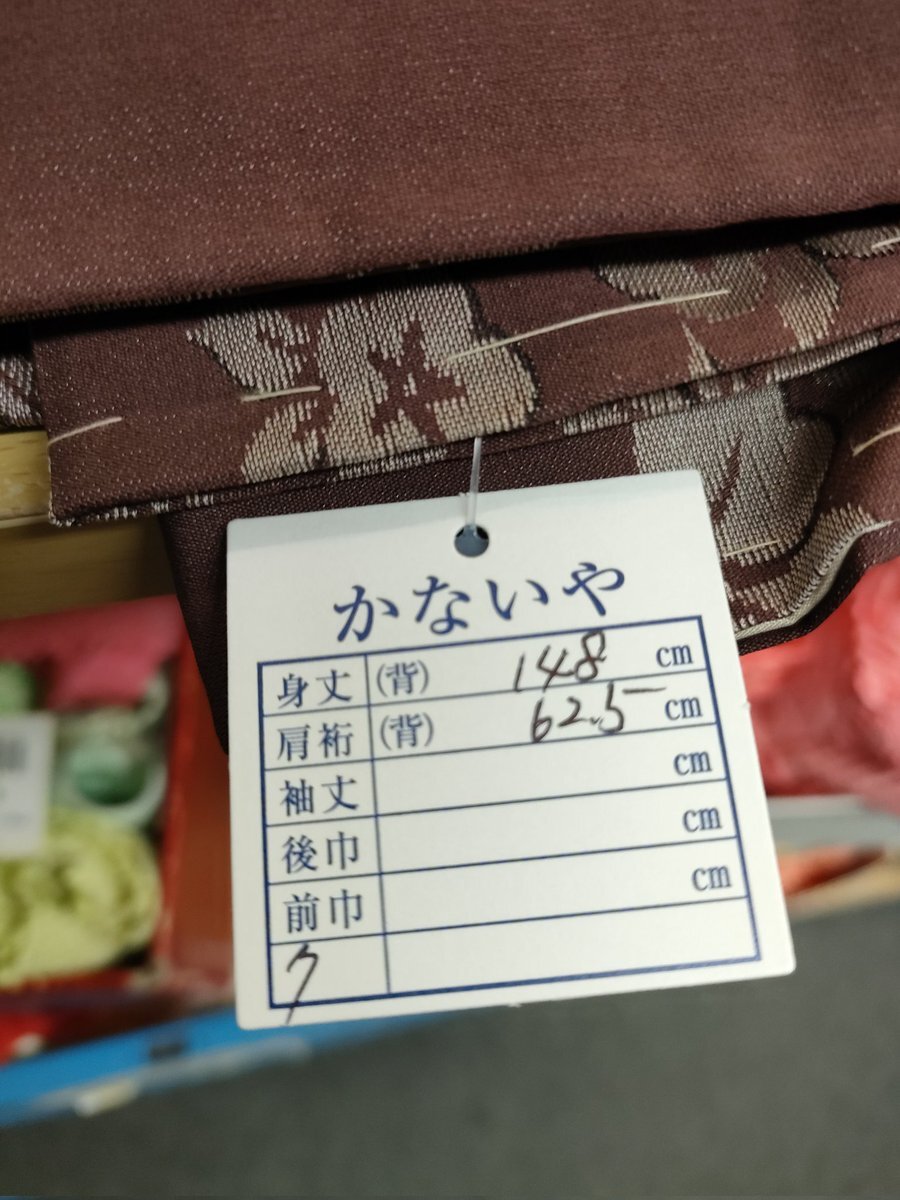 かないや
身丈 (背) 148 cm
肩裄 (背) 62.5 cm
袖丈 cm
後巾 cm
前巾 cm